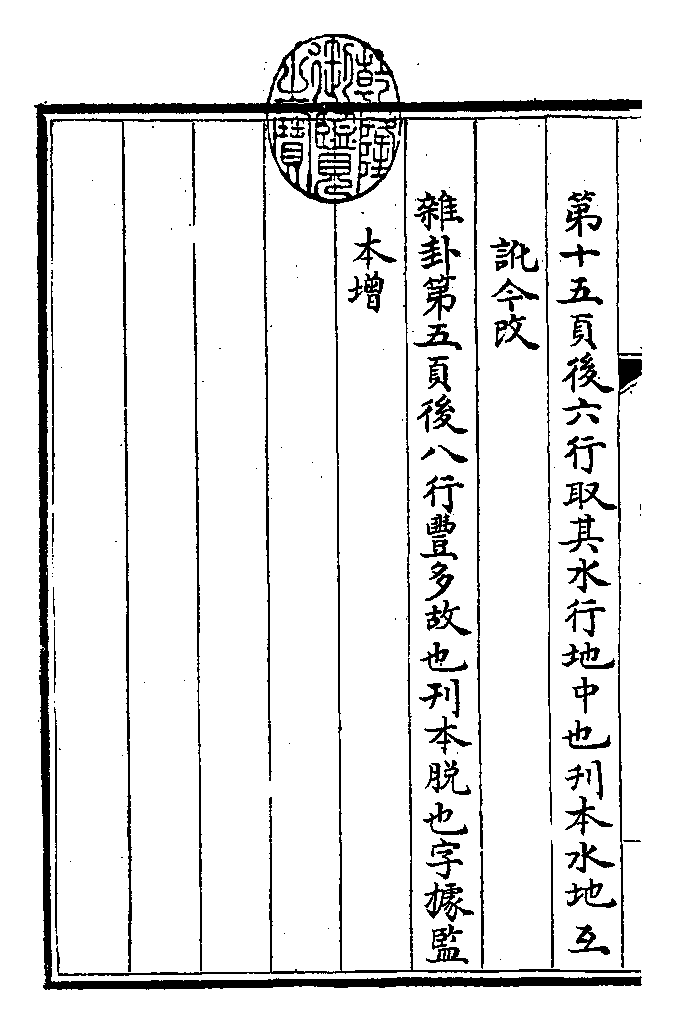 第十五頁後六行取其水行地中也刋本水地互
訛今改
雜卦第五頁後八行豐多故也刋本脱也字據監
本增
乾隆御覽之寶